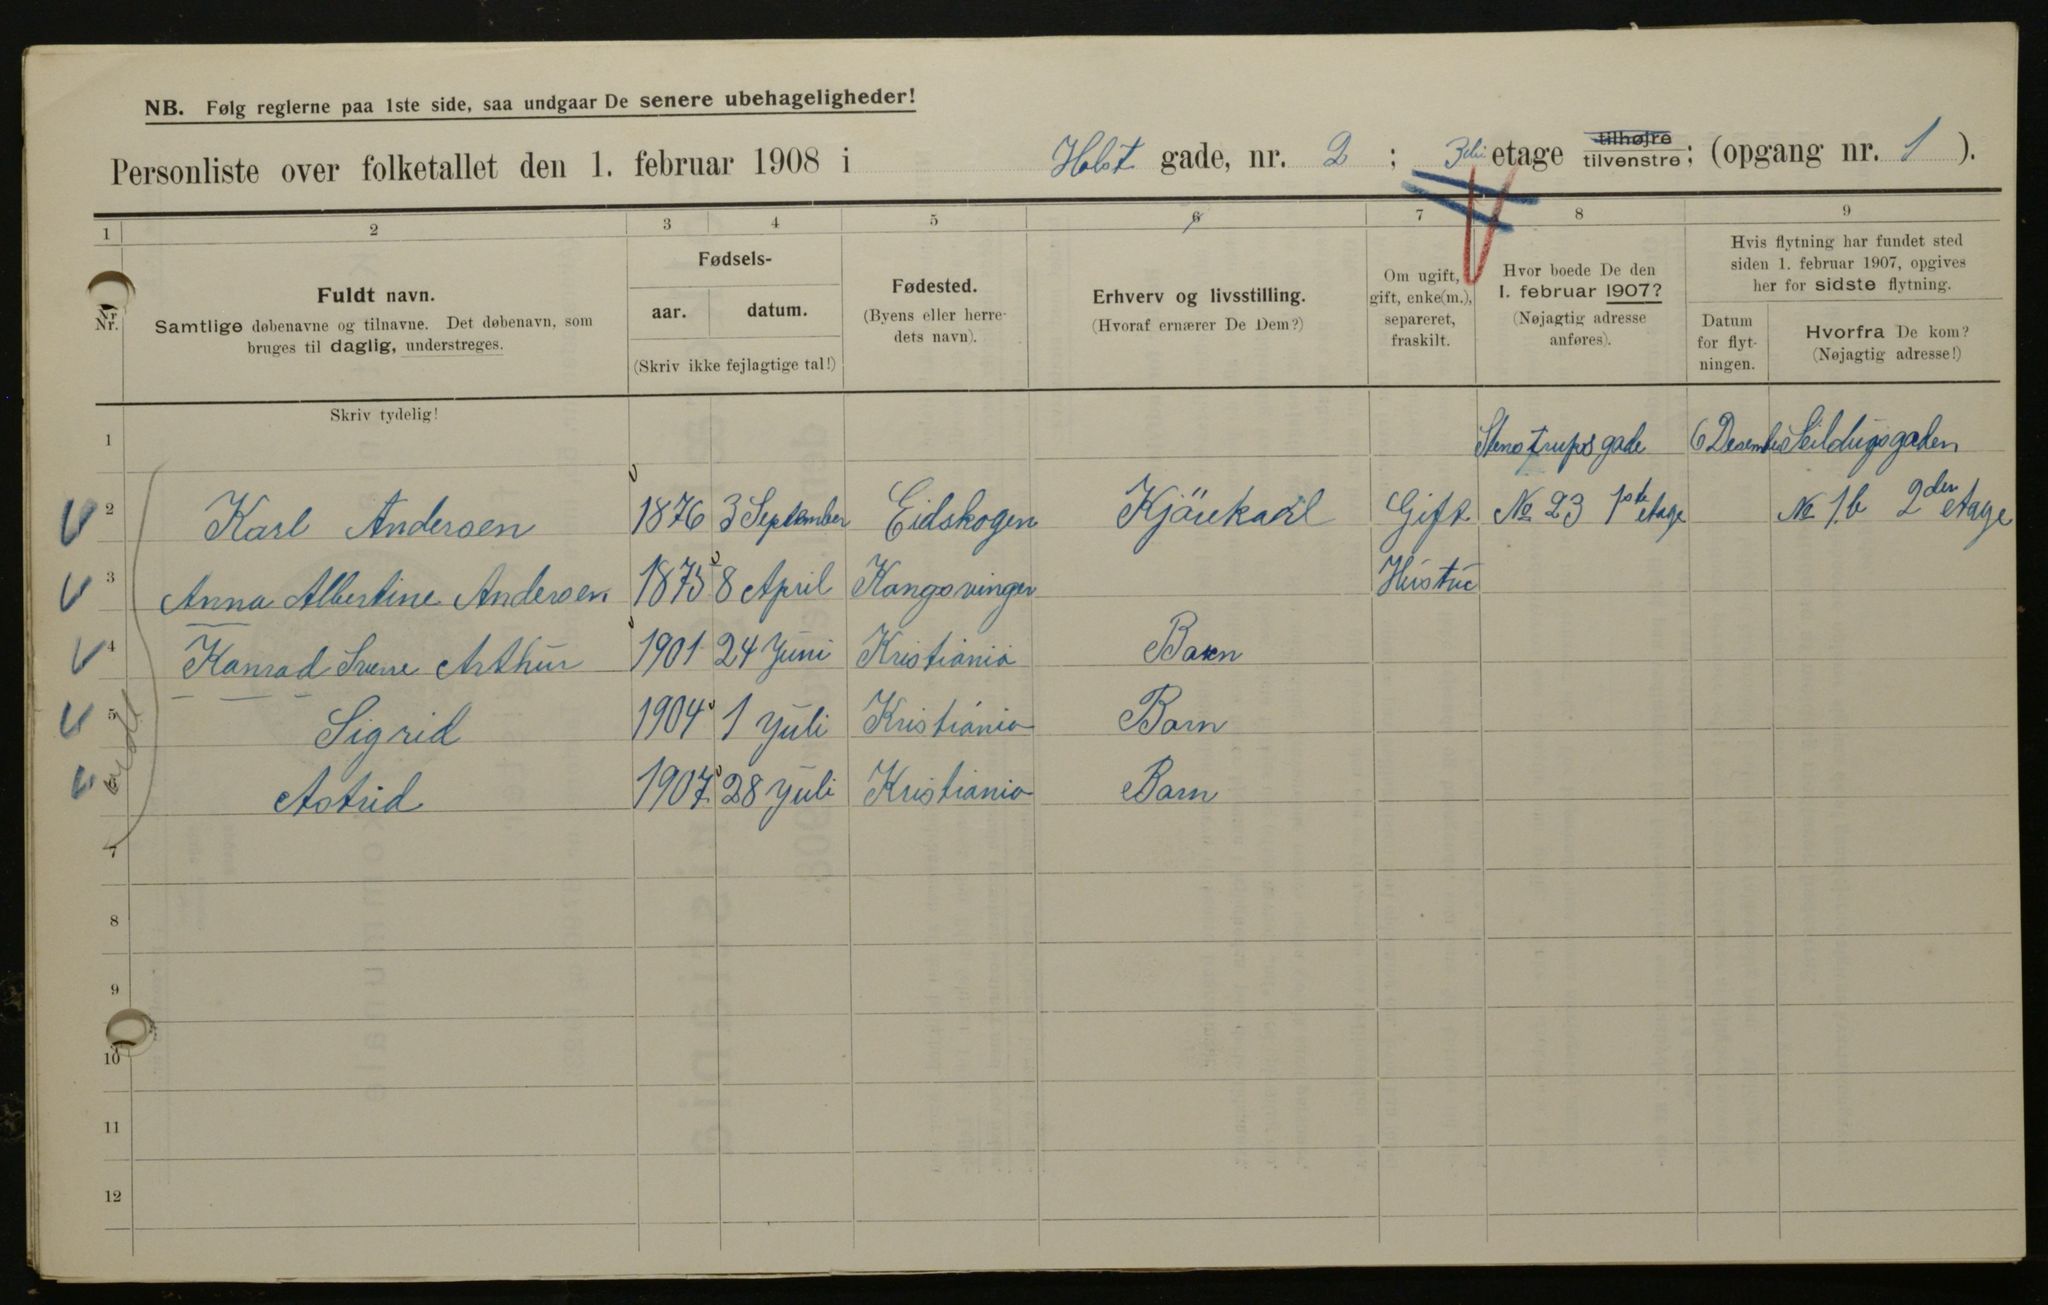 NB. Følg reglerne paa 1ste side, saa undgaar De senere ubehageligheder!
Personliste over folketallet den 1. februar 1908 i Holst gade, nr. 2 ; 3die etage tilhøjre tilvenstre; (opgang nr. 1 ).
1 2 3 4 5 6 7 8 9
Nr.
Fuldt navn.
Samtlige døbenavne og tilnavne. Det døbenavn, som
bruges til daglig, understreges.
Fødsels-
aar. datum.
(Skriv ikke fejlagtige tal!)
Fødested.
(Byens eller herre-
dets navn).
Erhverv og livsstilling.
(Hvoraf ernærer De Dem?)
Om ugift,
gift, enke(m.),
separeret,
fraskilt.
Hvor boede De den
1. februar 1907?
(Nøjagtig adresse
anføres).
Hvis flytning har fundet sted
siden 1. februar 1907, opgives
her for sidste flytning.
Datum
for flyt-
ningen.
Hvorfra De kom?
(Nøjagtig adresse!)
Skriv tydelig!
1 Stenstrupsgade 6 Desember
2 Karl Andersen 1876 3 September Eidskogen Kjörekarl Gift No 23 1ste etage No 1b 2den etage
3 Anna Albertine Andersen 1875 8 April Kongsvinger Hustru
4 Konrad Sverre Arthur 1901 24 Juni Kristiania Barn
5 Sigrid 1904 1 Juli Kristiania Barn
6 Astrid 1907 28 Juli Kristiania Barn
7
8
9
10
11
12